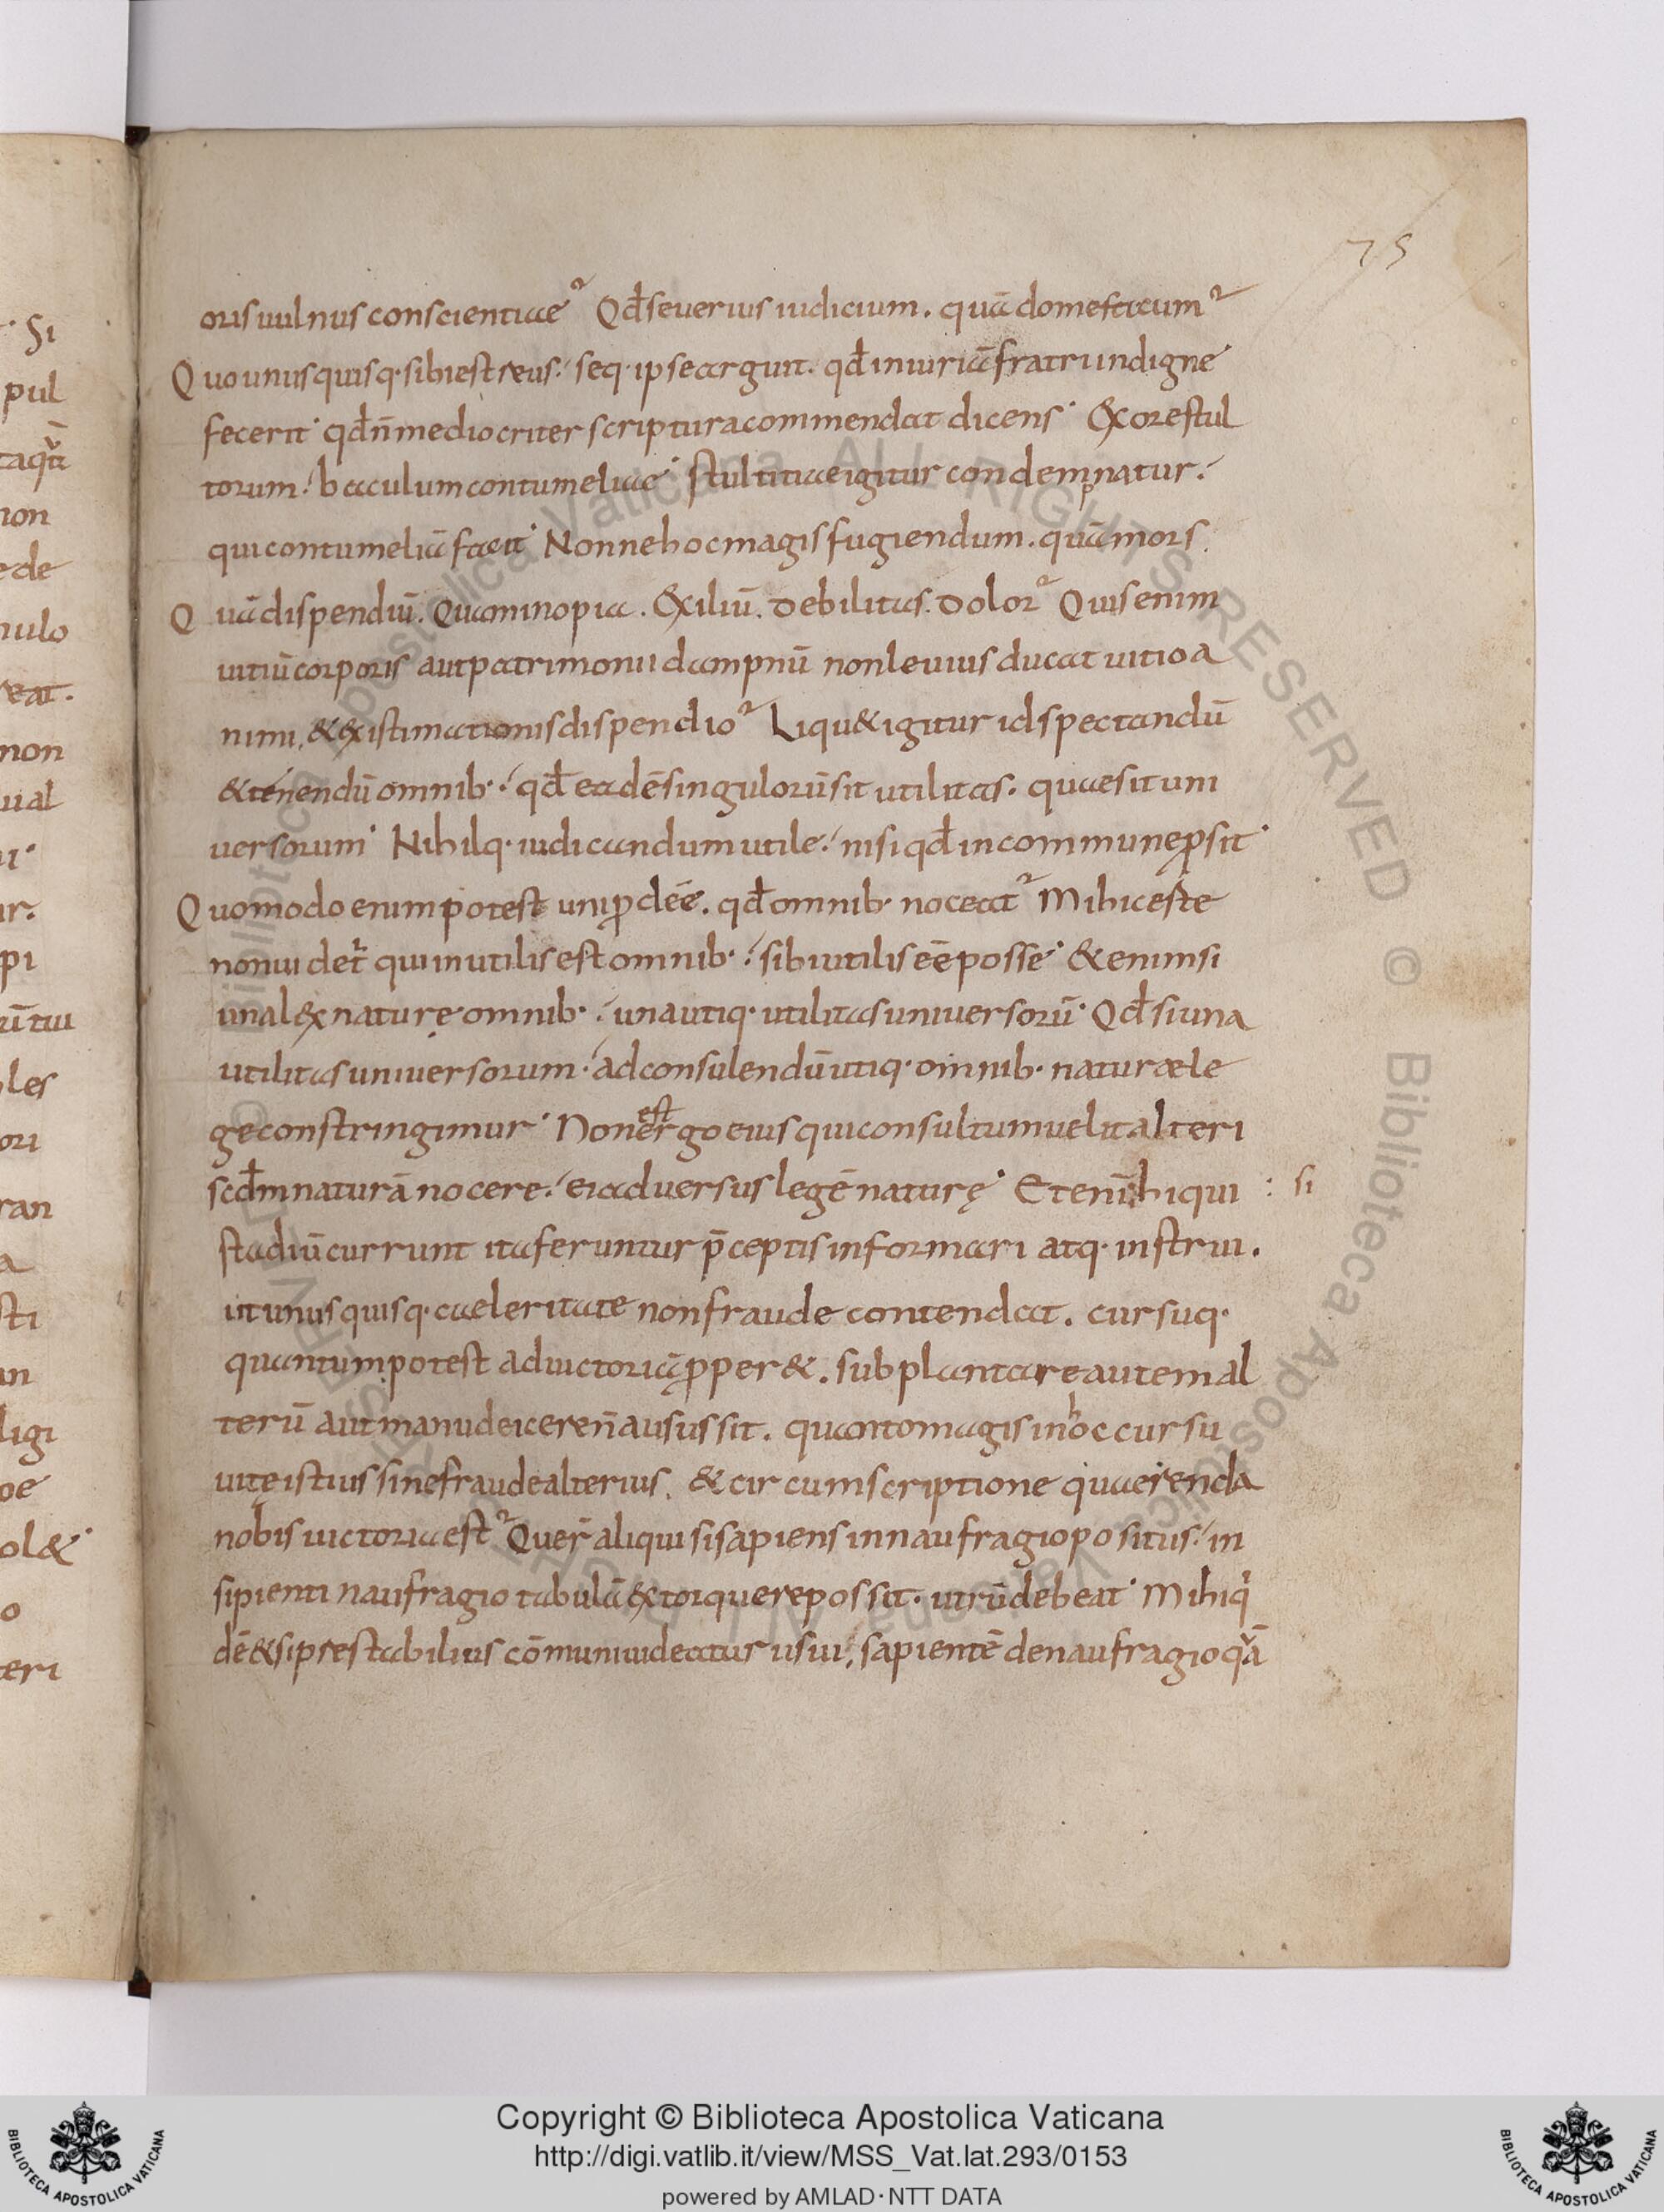 75
oris uulnus conscientiae? Qđ seuerius iudicium. quā domesticum?
Quo unusquisq· sibi est reus. seq· ipse arguit. qđ iniuriā fratri indigne
fecerit· qđ n̄ mediocriter scriptura commendat dicens· Ex ore stul
torum baculum contumeliae· stultitiae igitur condempnatur.
qui contumeliā facit· Nonne hoc magis fugiendum. quā mors.
Quā dispendiū. Quam inopia. Exiliū. Debilitas. Dolor? Quis enim
uitiū corporis aut patrimonii dampnū non leuius ducat uitio a
nimi. & existimationis dispendio? Liqu& igitur id spectandū
& tenendū omnib· qđ eadē singulorū sit utilitas. quae sit uni
uersorum· Nihilq· iudicandum utile nisi qđ in commune ꝓsit·
Quomodo enim potest uni ꝓdeē. qđ omnib· noceat? Mihi certe
non uidet̄ qui inutilis est omnib· sibi utilis eē posse· &enim si
una lex nature omnib· una utiq· utilitas uniuersorū· Qđ si una
utilitas uniuersorum· ad consulendū utiq· omnib· naturae le
ge constringimur· Non est ergo eius qui consultum uelit alteri
scđm naturā nocere ei aduersus legē naturę· Etenī hi qui : si
stadiū currunt ita feruntur p̄ceptis informari atq· instrui.
ut unusquisq· caeleritate non fraude contendat. cursuq·
quantum potest ad uictoriā ꝓper&. subplantare autem al
terū aut manu deicere n̄ ausus sit. quanto magis in hoc cursu
uitę istius sine fraude alterius. & circumscriptione quaerenda
nobis uictoria est? Quer̄ aliqui si sapiens in naufragio positus in
sipienti naufragio tabulā extorquere possit· utrū debeat· Mihi q
dē &si prestabilius cōmuni uideatur usui sapientē de naufragio quā
Si
pul
non
ede
nulo
reat.
non
ual
pi
les
ori
ran
a
sti
an
ligi
oe
ol&·
o
teri
© Biblioteca Apostolica Vaticana ALL RIGHTS RESERVED © Biblioteca Apostolica Vaticana ALL RIGHTS RESERVED
Copyright © Biblioteca Apostolica Vaticana
http://digi.vatlib.it/view/MSS_Vat.lat.293/0153
powered by AMLAD·NTT DATA
BIBLIOTECA APOSTOLICA VATICANA
BIBLIOTECA APOSTOLICA VATICANA